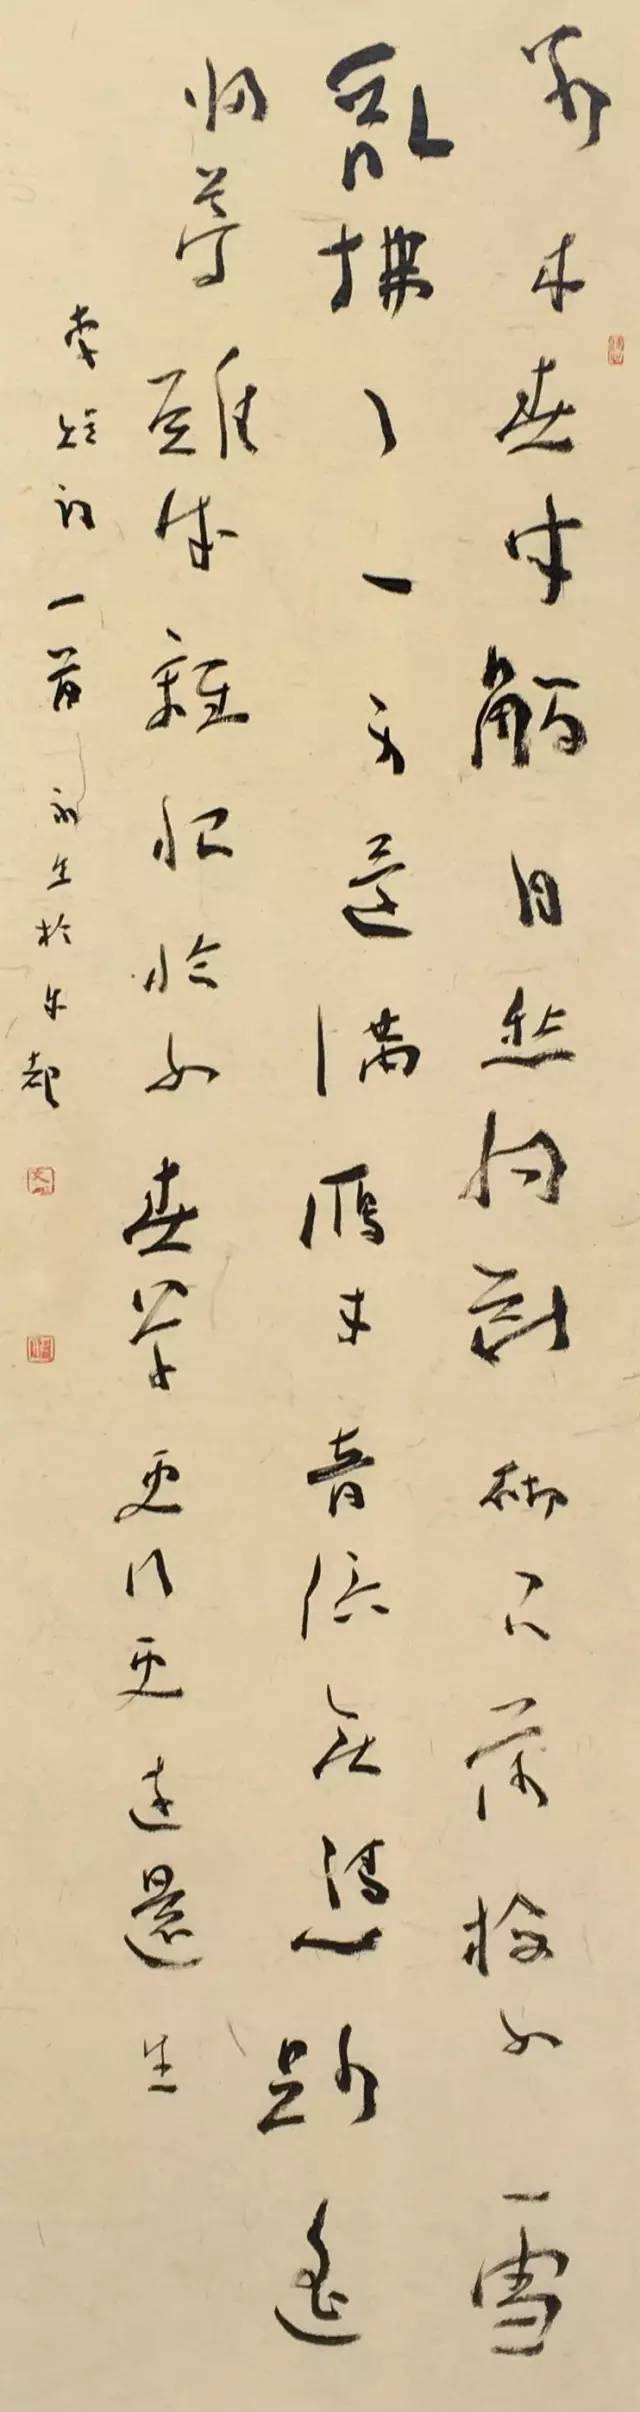 别來春半觸目愁腸斷砌下落梅如雪
亂拂了一身還滿雁來音信無憑路遥
歸夢難成離恨恰如春草更行更遠還生
李煜詞一首 生於 都